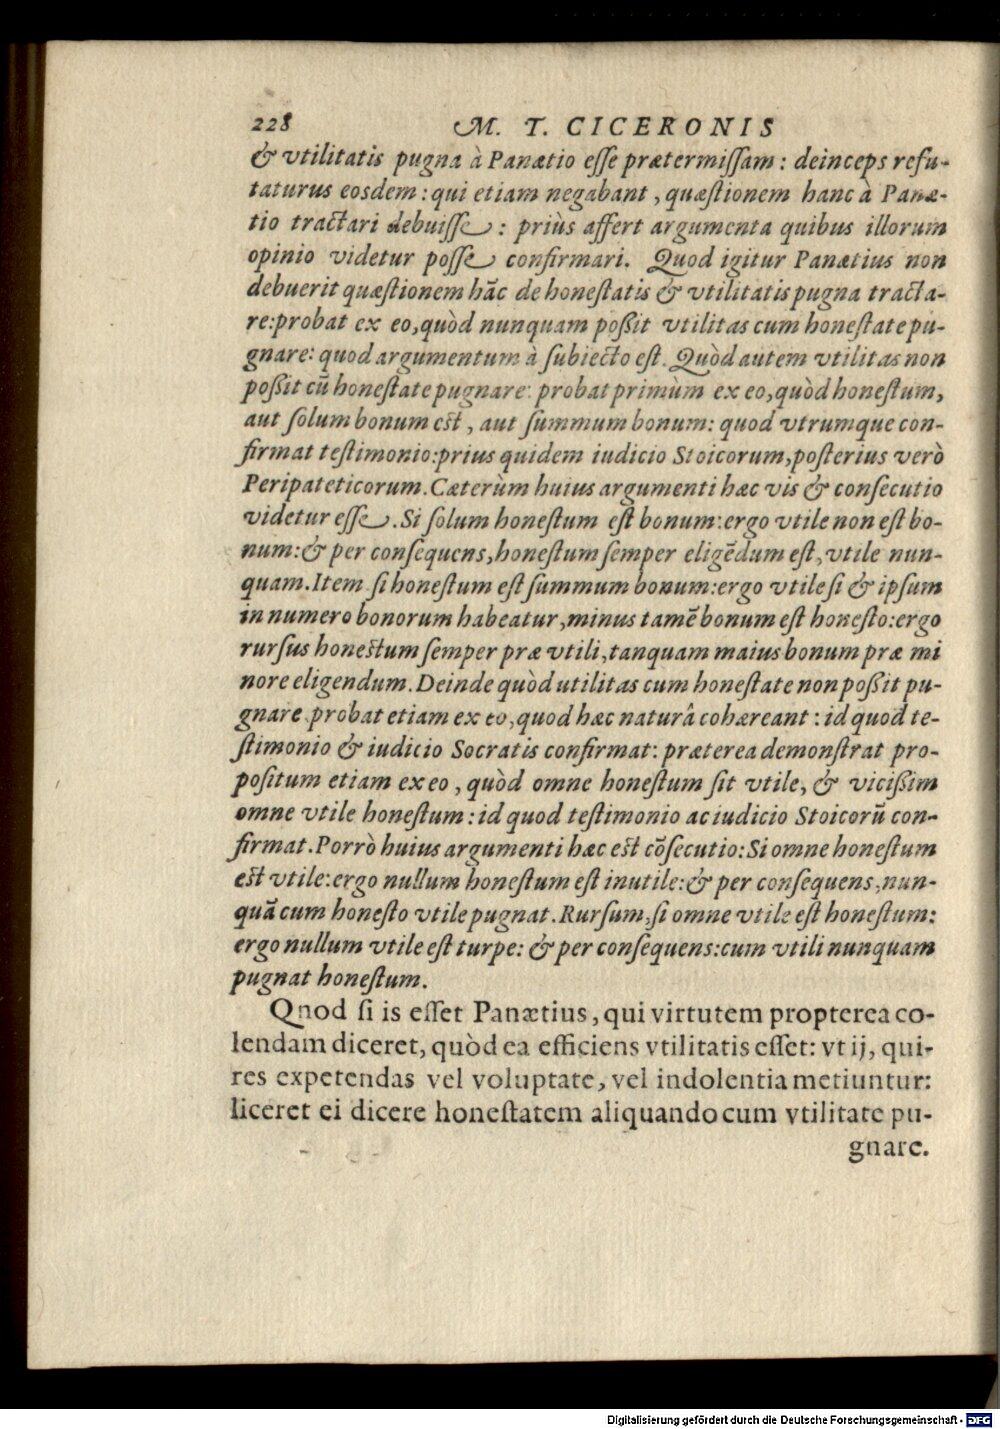 228 M. T. CICERONIS
& vtilitatis pugna à Panætio eſſe prætermiſſam: deinceps refu-
taturus eosdem: qui etiam negabant, quæſtionem hanc à Panæ-
tio tractari debuiſſe: priùs affert argumenta quibus illorum
opinio videtur poſſe confirmari. Quod igitur Panætius non
debuerit quæſtionem hāc de honeſtatis & vtilitatis pugna tracta-
re: probat ex eo, quòd nunquam poßit vtilitas cum honeſtate pu-
gnare: quod argumentum à ſubiecto eſt. Quòd autem vtilitas non
poßit cū honeſtate pugnare: probat primùm ex eo, quòd honeſtum,
aut ſolum bonum eſt, aut ſummum bonum: quod vtrumque con-
firmat teſtimonio: prius quidem iudicio Stoicorum, poſterius verò
Peripateticorum. Cæterùm huius argumenti hæc vis & conſecutio
videtur eſſe. Si ſolum honeſtum eſt bonum: ergo vtile non eſt bo-
num: & per conſequens, honeſtum ſemper eligēdum eſt, vtile nun-
quam. Item ſi honeſtum eſt ſummum bonum: ergo vtile ſi & ipſum
in numero bonorum habeatur, minus tamē bonum eſt honeſto: ergo
rurſus honeſtum ſemper præ vtili, tanquam maius bonum præ mi
nore eligendum. Deinde quòd utilitas cum honeſtate non poßit pu-
gnare probat etiam ex eo, quod hæc naturâ cohæreant: id quod te-
ſtimonio & iudicio Socratis confirmat: præterea demonſtrat pro-
poſitum etiam ex eo, quòd omne honeſtum ſit vtile, & vicißim
omne vtile honeſtum: id quod teſtimonio ac iudicio Stoicorū con-
firmat. Porrò huius argumenti hæc eſt cōſecutio: Si omne honeſtum
eſt vtile: ergo nullum honeſtum eſt inutile: & per conſequens, nun-
quā cum honeſto vtile pugnat. Rurſum, ſi omne vtile eſt honeſtum:
ergo nullum vtile eſt turpe: & per conſequens: cum vtili nunquam
pugnat honeſtum.
Quod ſi is eſſet Panætius, qui virtutem propterea co-
lendam diceret, quòd ea efficiens vtilitatis eſſet: vt ij, qui-
res expetendas vel voluptate, vel indolentia metiuntur:
liceret ei dicere honeſtatem aliquando cum vtilitate pu-
gnare.
Digitalisierung gefördert durch die Deutsche Forschungsgemeinschaft - DFG